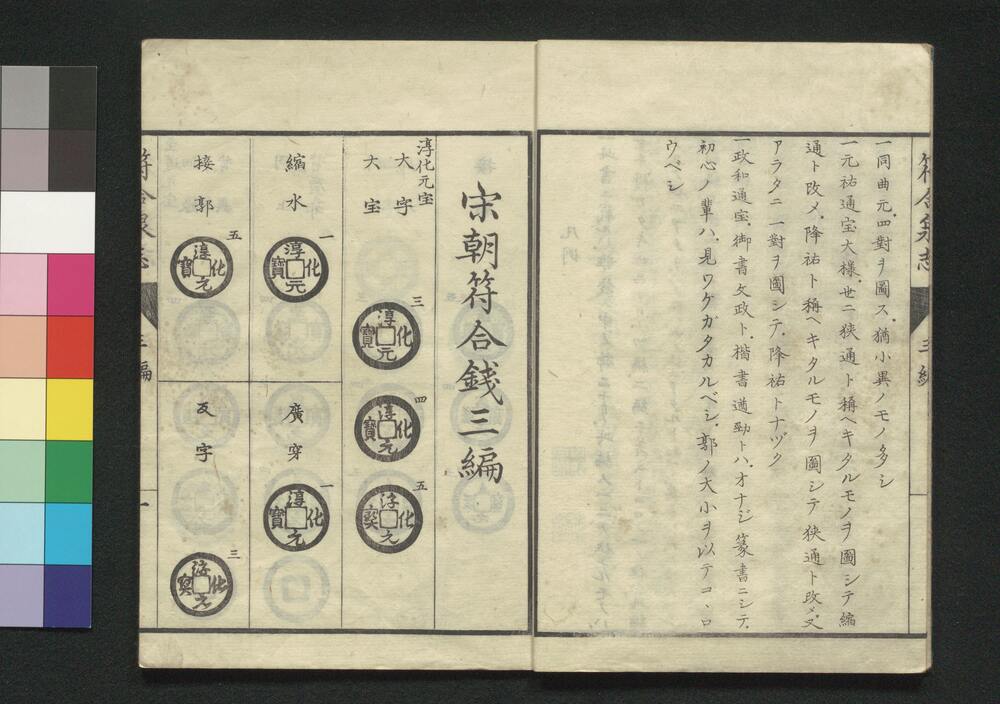 符合泉志
三編
一同曲元、四對ヲ圖ス、猶小異ノモノ多シ
一元祐通宝大様、世ニ狭通ト稱ヘキタルモノヲ圖シテ縮
通ト改メ、降祐ト稱ヘキタルモノヲ圖シテ狭通ト改メ、又
アラタニ一對ヲ圖シテ、降祐トナヅク
一政和通宝、御書文政ト、楷書遒勁トハ、オナジ篆書ニシテ、
初心ノ輩ハ、見ワケガタカルベシ、郭ノ大小ヲ以テコヽロ
ウベシ
宋朝符合銭三編
淳化元宝
大字
大宝
三
淳化元寳
四
淳化元寳
五
淳化元寳
縮水
一
淳化元寳
廣穿
一
淳化元寳
接郭
五
淳化元寳
反字
三
淳化元寳
符合泉志
三編
一